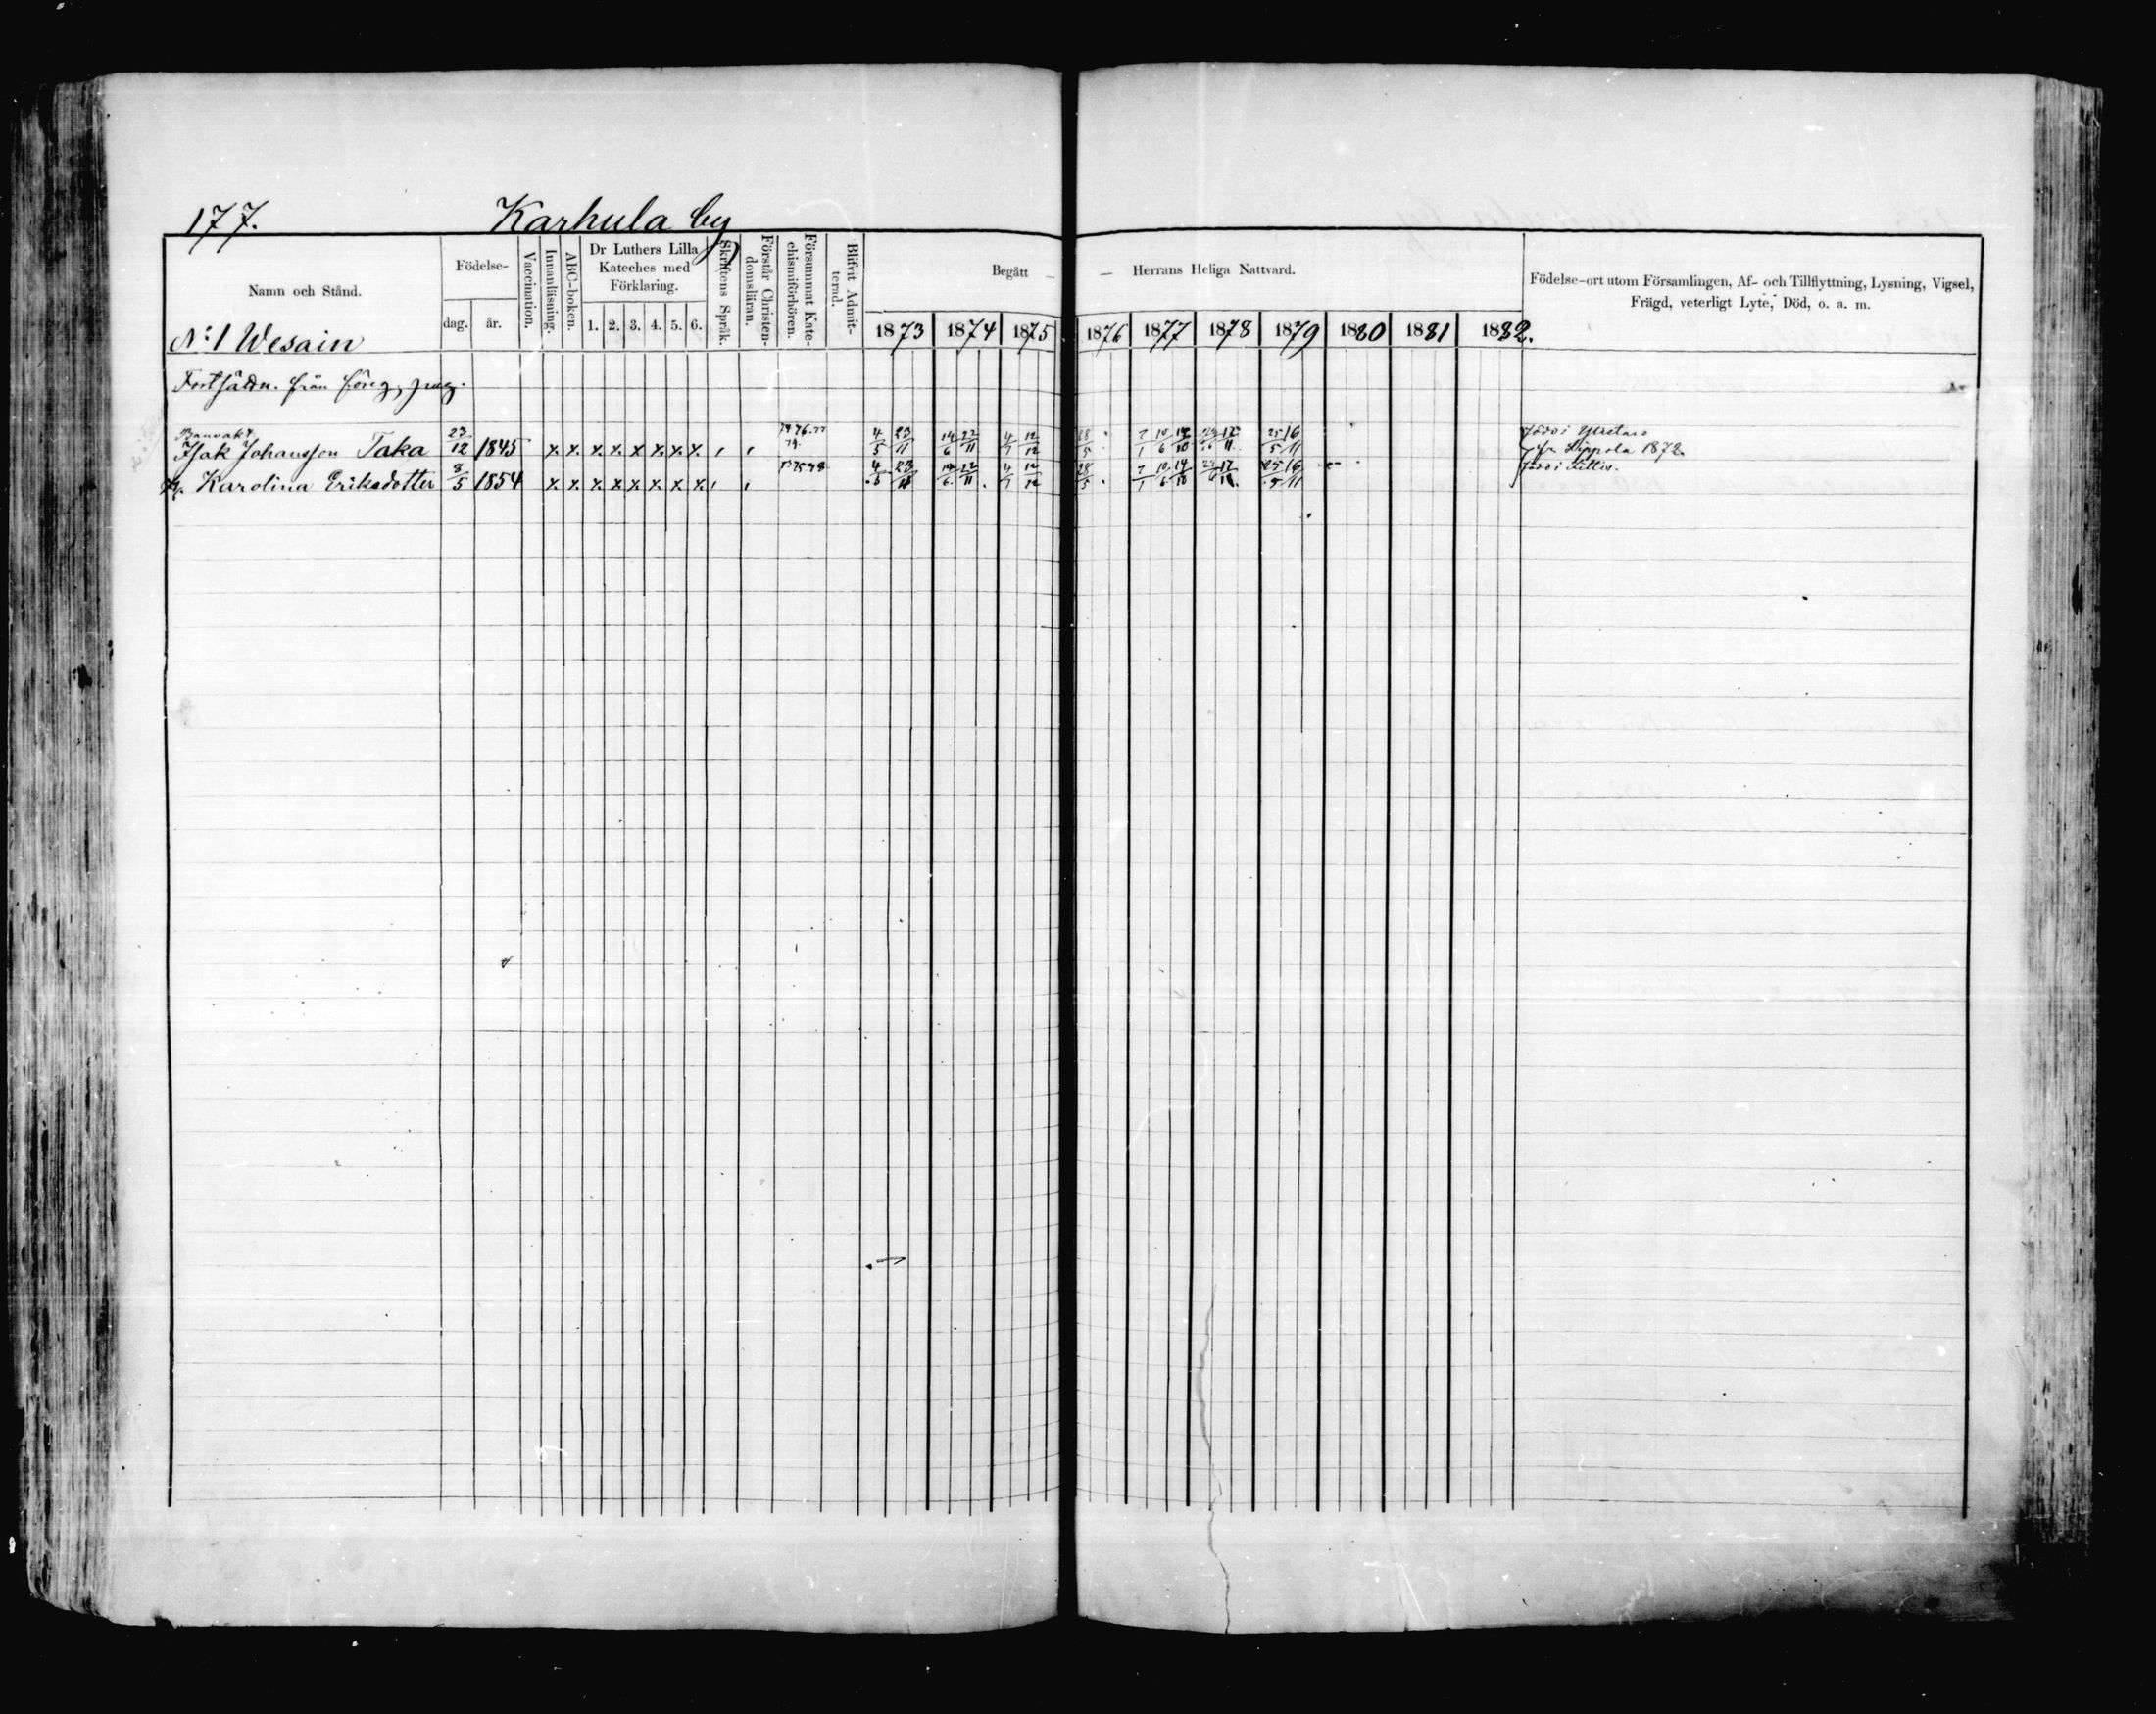 177. Karhula by
Namn och Stånd.
Födelse-
dag. år.
Vaccination.
Innanläsning.
ABC-boken.
Dr Luthers Lilla
Kateches med
Förklaring.
1. 2. 3. 4. 5. 6.
Skriftens Språk.
Förstår Christen-
domsläran.
Försummat Kate-
chismiförhören.
Blifvit Admit-
terad.
Begått — — Herrans Heliga Nattvard.
1873 1874 1875 1876 1877 1878 1879 1880 1881 1882.
Födelse-ort utom Församlingen, Af- och Tillflyttning, Lysning, Vigsel,
Frägd, veterligt Lyte, Död, o. a. m.
N:o 1 Wesain
Fortsättn. från föreg. pag.
Banvakt.
Isak Johansson Taka 23/12 1845 x x x x x x x x 74. 76. 77 79. 4/5 23/11 14/6 22/11 4/7 12/12 28/5 7/1 10/6 14/10 17/11 25/5 16/11 född i
fr. Sippola 1872.
Karolina Eriksdotter 8/5 1854 x x x x x x x x 4/5 23/11 14/6 22/11 4/7 12/12 28/5 7/1 10/6 14/10 17/11 25/5 16/11 född i